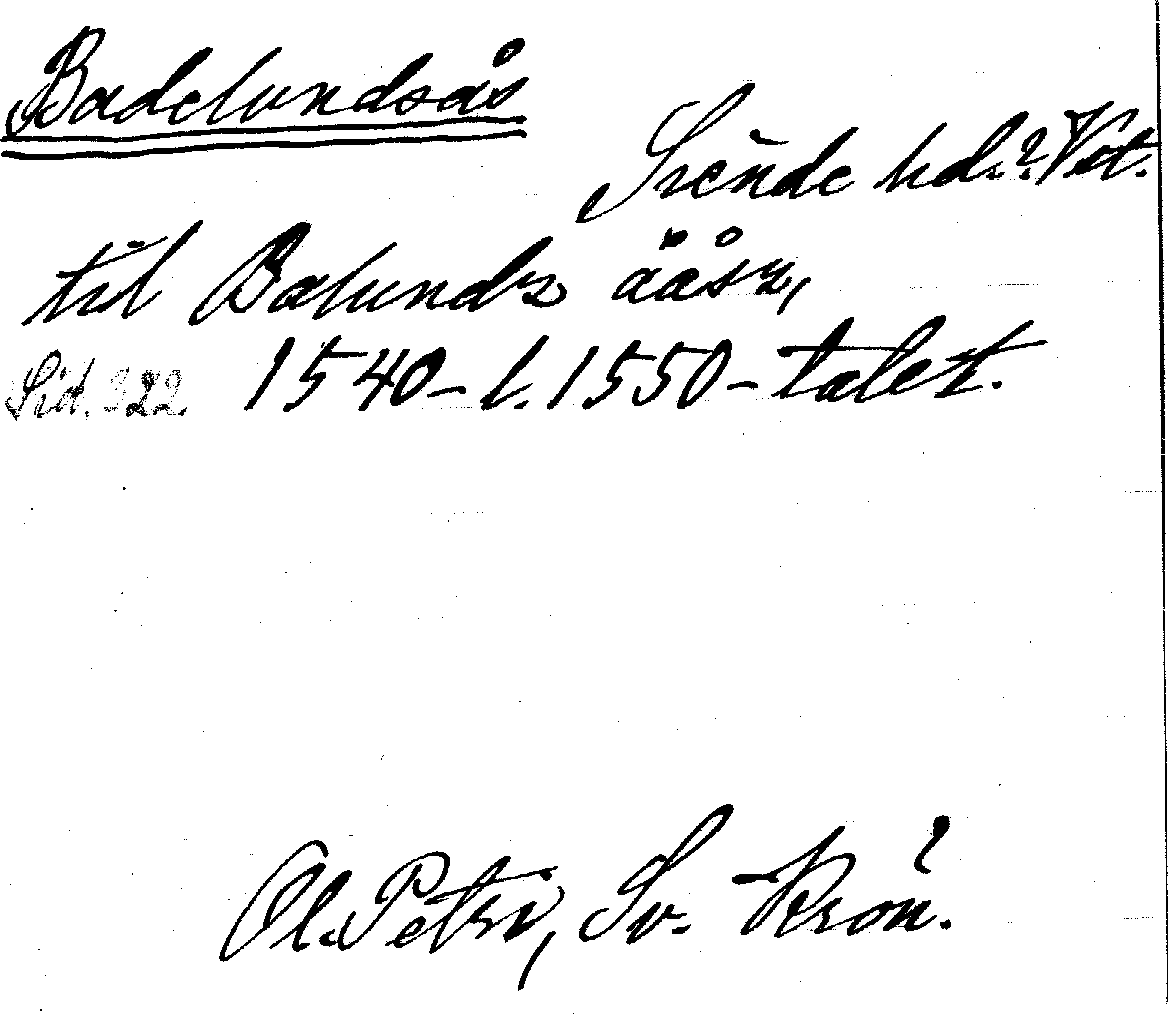 Badelundsås
Siende hd.? Vst.
til Balundz ååsz,
Sid. 322. 1540- l. 1550-talet.
Ol. Petri, Sv. Krön.